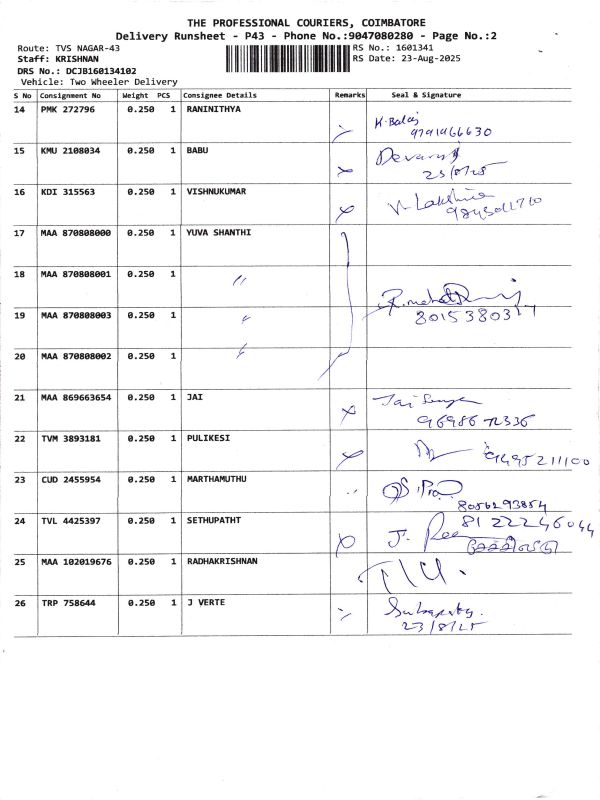 THE PROFESSIONAL COURIERS, COIMBATORE
Delivery Runsheet - P43 - Phone No.:9047080280 - Page No.:2
Route: TVS NAGAR-43 RS No.: 1601341
Staff: KRISHNAN RS Date: 23-Aug-2025
DRS No.: DCJB160134102
Vehicle: Two Wheeler Delivery
S No Consignment No Weight PCS Consignee Details Remarks Seal & Signature
14 PMK 272796 0.250 1 RANINITHYA K. Balaj
9791966630
15 KMU 2108034 0.250 1 BABU Devaraj
23/8/25
16 KDI 315563 0.250 1 VISHNUKUMAR V. Lakshmi
9843011710
17 MAA 870808000 0.250 1 YUVA SHANTHI
18 MAA 870808001 0.250 1 "
19 MAA 870808003 0.250 1 "
8015380317
20 MAA 870808002 0.250 1 "
21 MAA 869663654 0.250 1 JAI Jai
9698672336
22 TVM 3893181 0.250 1 PULIKESI 9495211100
23 CUD 2455954 0.250 1 MARTHAMUTHU
8056293854
24 TVL 4425397 0.250 1 SETHUPATHT 8122246044
J.
25 MAA 102019676 0.250 1 RADHAKRISHNAN
26 TRP 758644 0.250 1 J VERTE
23/8/25